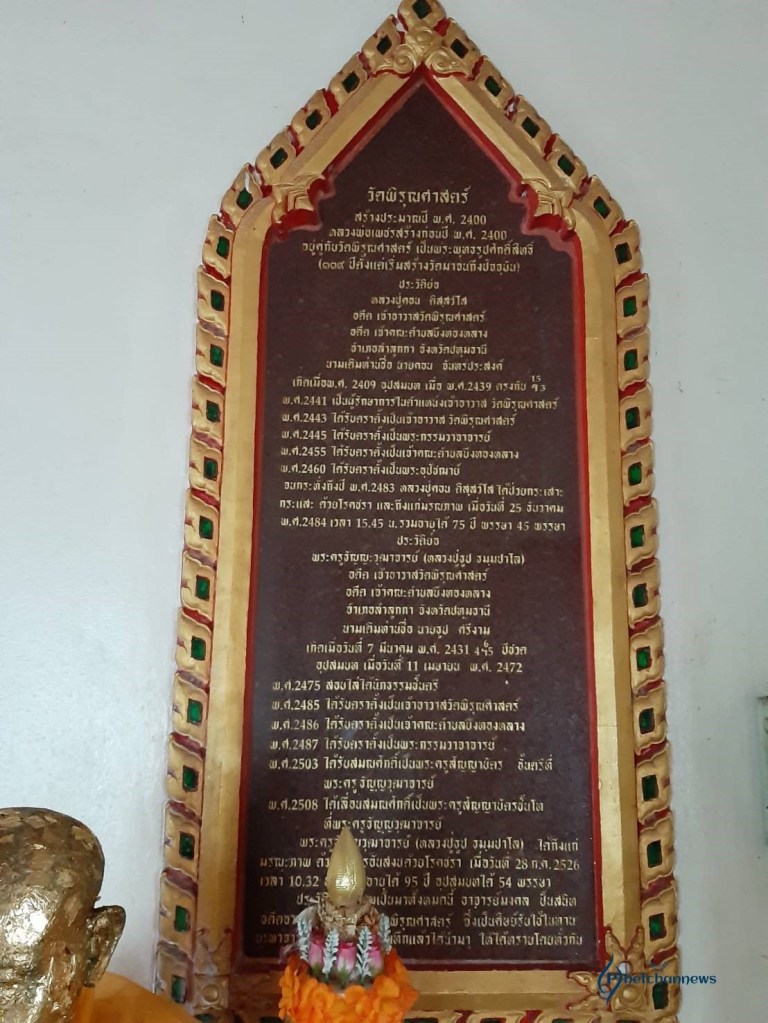 วัดพิรุณศาสตร์
สร้างประมาณปี พ.ศ. 2400
หลวงพ่อเพชรสร้างก่อนปี พ.ศ. 2400
อยู่คู่กับวัดพิรุณศาสตร์ เป็นพระพุทธรูปศักดิ์สิทธิ์
(๑๓๙ ปีตั้งแต่เริ่มสร้างวัดมาจนถึงปัจจุบัน)
ประวัติย่อ
หลวงปู่คอน ติสฺสวํโส
อดีต เจ้าอาวาสวัดพิรุณศาสตร์
อดีต เจ้าคณะตำบลบึงทองหลาง
อำเภอลำลูกกา จังหวัดปทุมธานี
นามเดิมท่านชื่อ นายคอน จันทร์ประสงค์
เกิดเมื่อพ.ศ. 2409 อุปสมบท เมื่อ พ.ศ.2439 ตรงกับ
พ.ศ.2441 เป็นผู้รักษาการในตำแหน่งเจ้าอาวาส วัดพิรุณศาสตร์
พ.ศ.2443 ได้รับตราตั้งเป็นเจ้าอาวาส วัดพิรุณศาสตร์
พ.ศ.2445 ได้รับตราตั้งเป็นพระกรรมวาจาจารย์
พ.ศ.2455 ได้รับตราตั้งเป็นเจ้าคณะตำบลบึงทองหลาง
พ.ศ.2460 ได้รับตราตั้งเป็นพระอุปัชฌาย์
จนกระทั่งถึงปี พ.ศ.2483 หลวงปู่คอน ติสฺสวํโส ได้ป่วยกระเสาะ
กระแสะ ด้วยโรคชรา และถึงแก่มรณภาพ เมื่อวันที่ 25 ธันวาคม
พ.ศ.2484 เวลา 15.45 น.รวมอายุได้ 75 ปี พรรษา 45 พรรษา
ประวัติย่อ
พระครูธัญญะวุฒาจารย์ (หลวงปู่ธูป ธมฺมปาโล)
อดีต เจ้าอาวาสวัดพิรุณศาสตร์
อดีต เจ้าคณะตำบลบึงทองหลาง
อำเภอลำลูกกา จังหวัดปทุมธานี
นามเดิมท่านชื่อ นายธูป ศรีงาม
เกิดเมื่อวันที่ 7 มีนาคม พ.ศ. 2431 ปีชวด
อุปสมบท เมื่อวันที่ 11 เมษายน พ.ศ. 2472
พ.ศ.2475 สอบไล่ได้นักธรรมชั้นตรี
พ.ศ.2485 ได้รับตราตั้งเป็นเจ้าอาวาสวัดพิรุณศาสตร์
พ.ศ.2486 ได้รับตราตั้งเป็นเจ้าคณะตำบลบึงทองหลาง
พ.ศ.2487 ได้รับตราตั้งเป็นพระกรรมวาจาจารย์
พ.ศ.2503 ได้รับสมณศักดิ์เป็นพระครูสัญญาบัตร ชั้นตรีที่
พระครูธัญญวุฒาจารย์
พ.ศ.2508 ได้เลื่อนสมณศักดิ์เป็นพระครูสัญญาบัตรชั้นโท
ที่พระครูธัญญวุฒาจารย์
วุฒาจารย์ (หลวงปู่ธูป ธมฺมปาโล) ได้ถึงแก่
มรณะภาพ ด้วยโรคชรา เมื่อวันที่ 28 ก.ค.2526
เวลา 10.32 อายุได้ 95 ปี อุปสมบทได้ 54 พรรษา
เป็นมาทั้งหมดนี้ อาจารย์มงคล ปั้นสนิท
พิรุณศาสตร์ ซึ่งเป็นศิษย์รับใช้ในท่าน
ให้ได้ทราบโดยทั่วกัน
betchannews